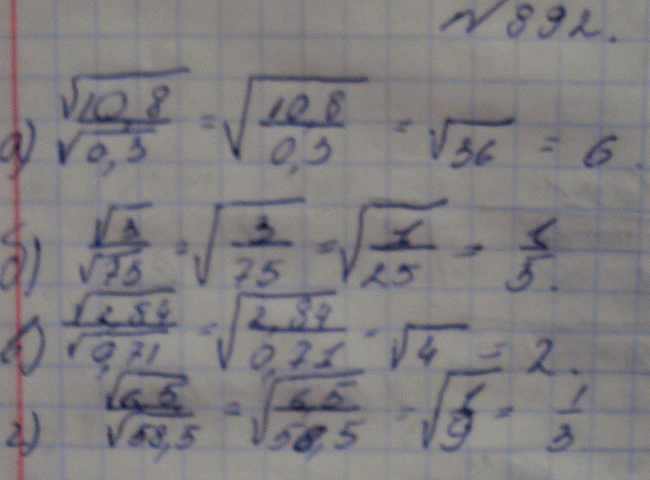 №892.
а) √10,8/√0,3 = √(10,8/0,3) = √36 = 6.
б) √3/√75 = √(3/75) = √(1/25) = 1/5.
в) √2,84/√0,71 = √(2,84/0,71) = √4 = 2.
г) √6,5/√58,5 = √(6,5/58,5) = √(1/9) = 1/3